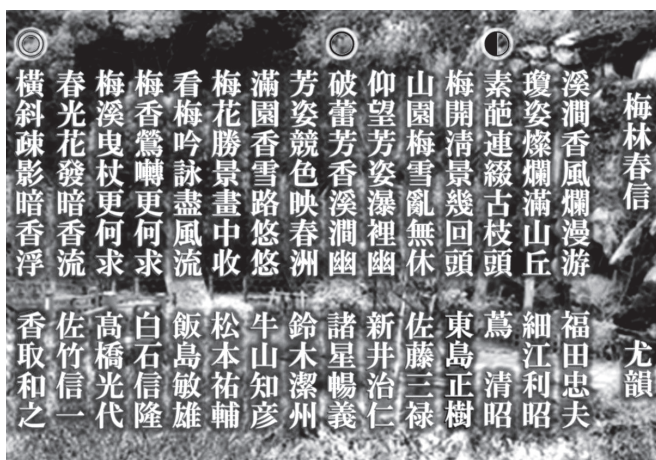 梅林春信 尤韻
溪澗香風爛漫游 福田忠夫
瓊姿燦爛滿山丘 細江利昭
素葩連綴古枝頭 蔦 清昭
梅開淸景幾回頭 東島正樹
山園梅雪亂無休 佐藤三禄
仰望芳姿瀑裡幽 新井治仁
破蕾芳香溪澗幽 諸星暢義
芳姿競色映春洲 鈴木潔州
滿園香雪路悠悠 牛山知彦
梅花勝景畫中收 松本祐輔
看梅吟詠盡風流 飯島敏雄
梅香鶯囀更何求 白石信隆
梅溪曳杖更何求 高橋光代
春光花發暗香流 佐竹信一
橫斜疎影暗香浮 香取和之